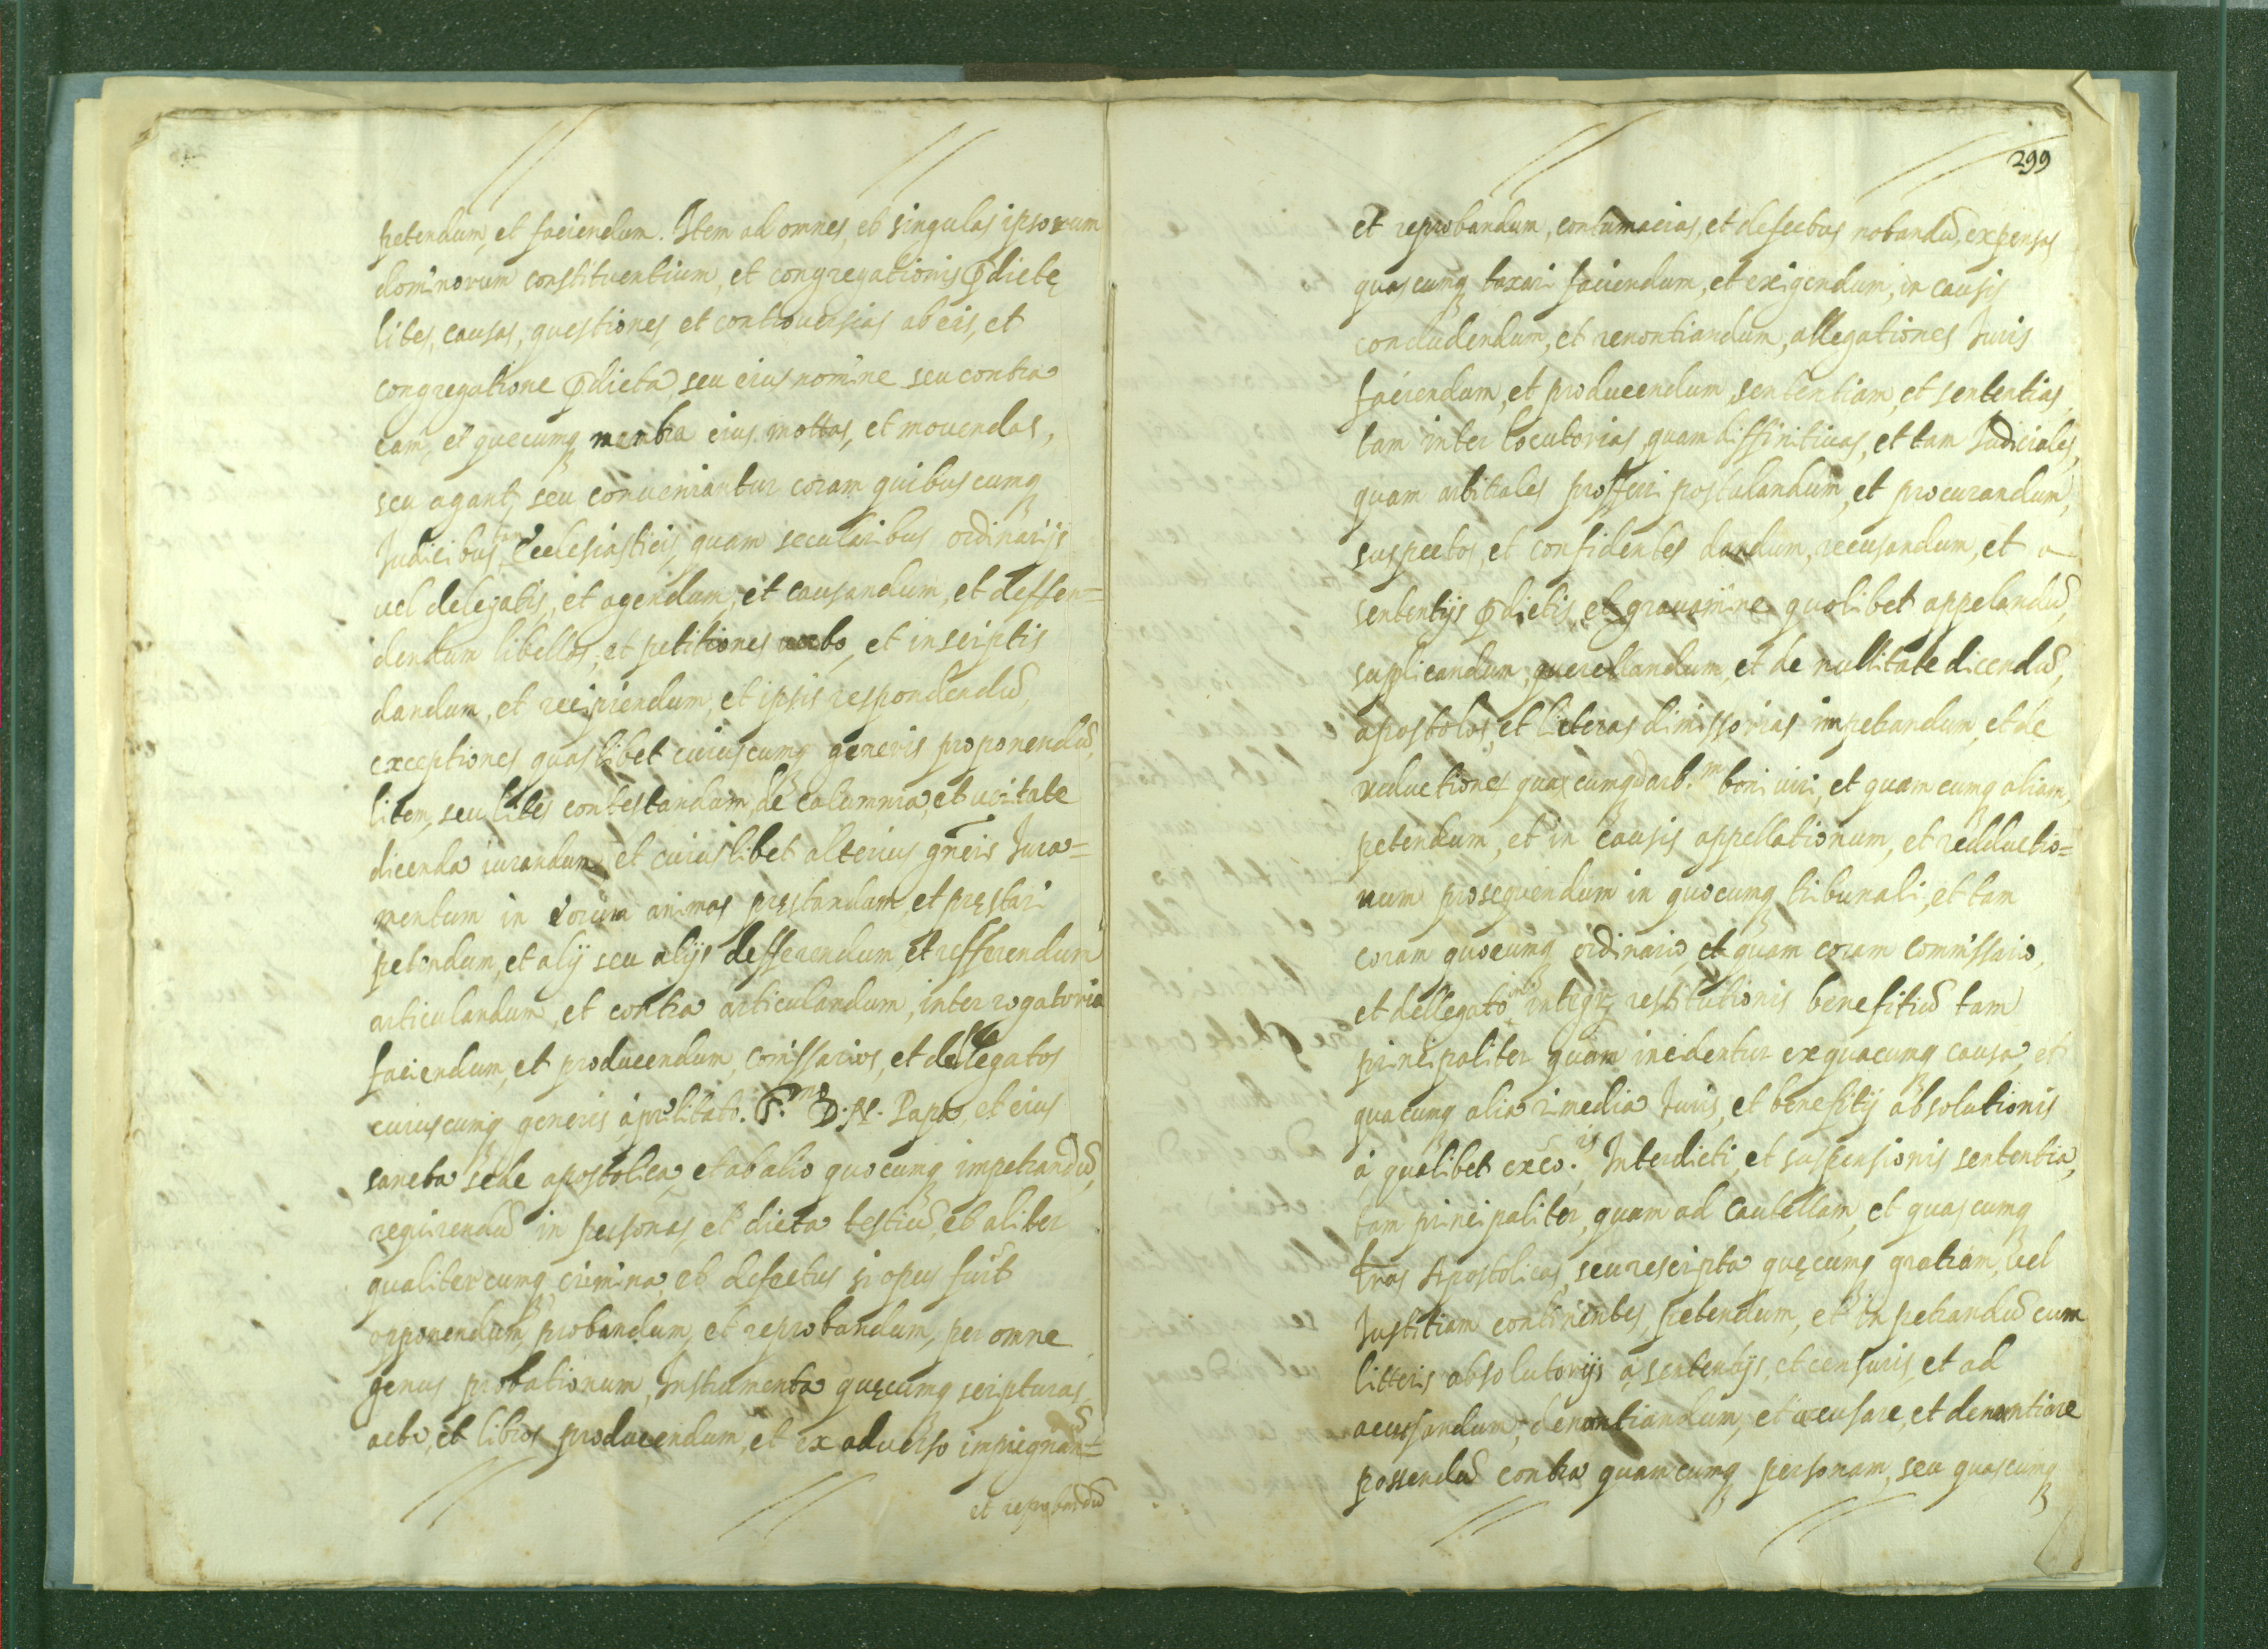 petendum, et faciendum. Item ad omnes, et singulas ipsorum
dominorum constituentium, et congregationis pdictę
lites, causas, questiones, et controuersias ab eis, et
congregatione pdicta seu eius nomine seu contra
eam, et quecumq membra eius mottas, et mouendas,
seu agant, seu conueniantur coram quibuscumq
Iudicibus tam Ecclesiasticis, quam secularibus ordinarijs
uel delegatis, et agendum, et causandum, et deffen=
dendum libellos, et petitiones uerbo, et inscriptis
dandum, et recipiendum, et ipsis respondendū,
exceptiones quaslibet cuiuscumq generis proponendū,
litem, seu lites contestandum, de calumnia, et ueritate
dicenda iurandum, et cuiuslibet alterius gñeris Iura=
mentum in eorum animas pręstandum, et pręstari
petendum, et alij seu alijs defferendum, et refferendum
articulandum, et contra articulandum, interrogatoria
faciendum, et producendum, comissarios, et dellegatos
cuiuscumq generis, à prelibato. S.mo D. N. Papa, et eius
sancta sede apostolica, et ab alio quocumq impetrandū,
requirendū in personas, et dicta testiū, et aliter
qualitercumq crimina, et defectus si opus fuit
opponendum, probandum, et reprobandum, per omne
genus probationum, Instrumenta quęcumq scripturas,
acta, et libros producendum, et ex aduerso impugnan=dū
et reprobandū
299
et reprobandum, contumacias, et defectus notandū, expensas
quascumq taxari faciendum, et exigendum, in causis
concludendum, et renontiandum, allegationes Iuris
faciendum, et producendum sententiam, et sententias
tam inter locutorias, quam diffinitiuas, et tam Iudiciales,
quam arbitrales profferri postulandum, et procurandum,
suspectos, et confidentes dandum, recusandum, et a
sententijs pdictis, et grauamine quolibet appelandū,
suplicandum, querellandum, et de nullitate dicendū,
apostolos, et litteras dimissorias impetrandum, et de
reductiones quascumq ad arb.m boni uiri, et quamcumq aliam,
petendum, et in causis appellationum, et redductio=
num prosequendum in quocumq tribunali, et tam
coram quocumq ordinario, et quam coram commissario,
et dellegato in integrę restitutionis benefitiū tam
principaliter quam incidentur ex quacumq causa, et
quacumq alia rimedia Iuris, et benefitij absolutionis
à qualibet exco.is, Interdicti, et suspensionis sententia,
tam principaliter, quam ad cautellam, et quascumq
tras Apostolicas, seu rescripta quęcumq gratiam, uel
Iustitiam continentes, petendum, et inpetrandū cum
litteris absolutorijs a sententijs, et censuris, et ad
accusandum, denontiandum, et accusare, et denontiare
possendū contra quamcumq personam, seu quascumq